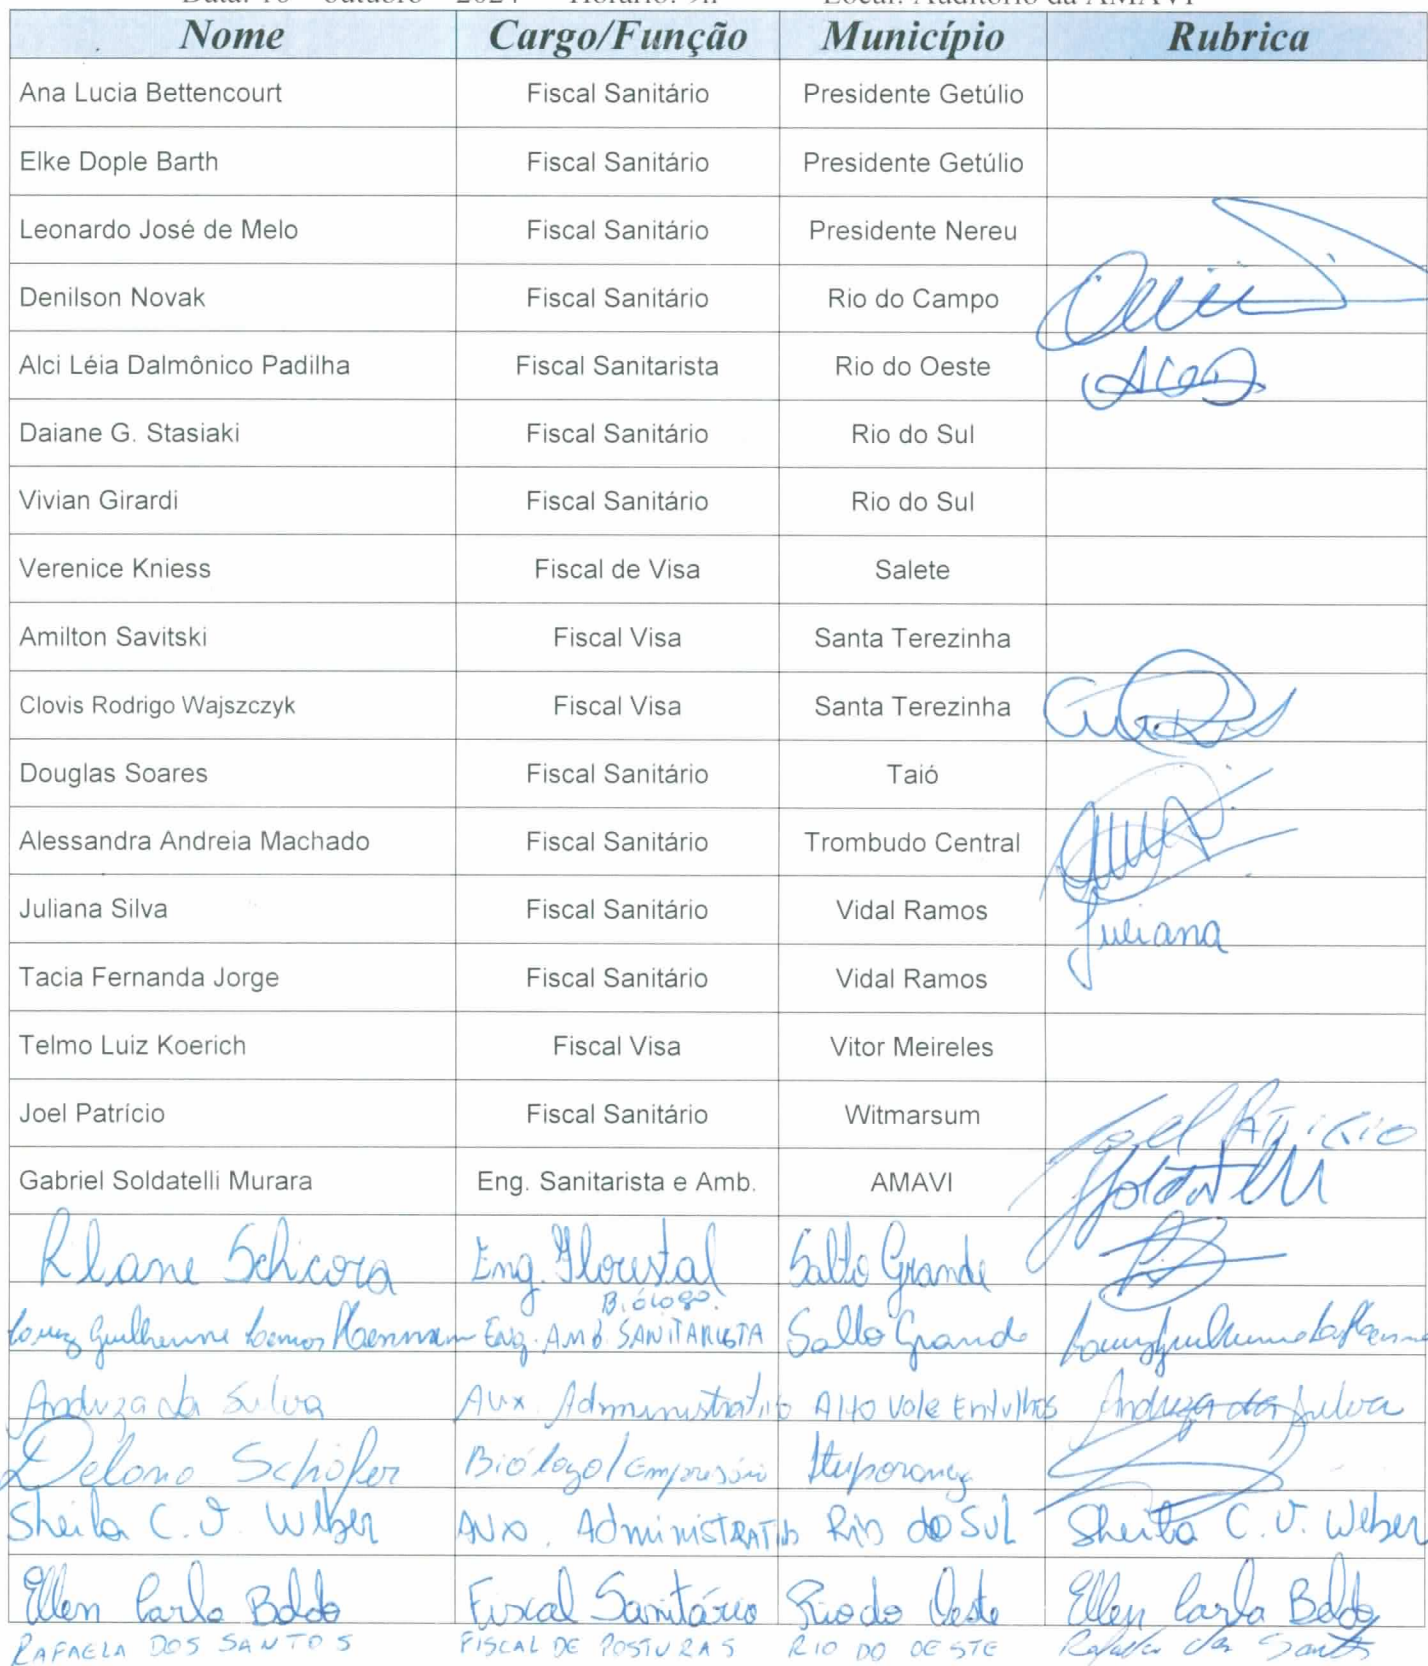 Data: 16 – outubro – 2024 Horário: 9h Local: Auditório da AMAVI
Nome Cargo/Função Município Rubrica
Ana Lucia Bettencourt Fiscal Sanitário Presidente Getúlio
Elke Dople Barth Fiscal Sanitário Presidente Getúlio
Leonardo José de Melo Fiscal Sanitário Presidente Nereu
Denilson Novak Fiscal Sanitário Rio do Campo
Alci Léia Dalmônico Padilha Fiscal Sanitarista Rio do Oeste
Daiane G. Stasiaki Fiscal Sanitário Rio do Sul
Vivian Girardi Fiscal Sanitário Rio do Sul
Verenice Kniess Fiscal de Visa Salete
Amilton Savitski Fiscal Visa Santa Terezinha
Clovis Rodrigo Wajszczyk Fiscal Visa Santa Terezinha
Douglas Soares Fiscal Sanitário Taió
Alessandra Andreia Machado Fiscal Sanitário Trombudo Central
Juliana Silva Fiscal Sanitário Vidal Ramos Juliana
Tacia Fernanda Jorge Fiscal Sanitário Vidal Ramos
Telmo Luiz Koerich Fiscal Visa Vitor Meireles
Joel Patrício Fiscal Sanitário Witmarsum Joel Patricio
Gabriel Soldatelli Murara Eng. Sanitarista e Amb. AMAVI Soldatelli
Schicora Eng. Florestal Salto Grande
Biólogo.
Guilherme Lemos Eng. Amb. SANITARISTA Salto Grande
da Silva Aux. Administrativo Alto Vale Entulhos da Silva
Delano Biólogo/Empresário Ituporanga
Sheila C. V. Weber AUX. ADMINISTRATIVO Rio do Sul Sheila C. V. Weber
Ellen Carla Boldo Fiscal Sanitário Rio do Oeste Ellen Carla Boldo
RAFAELA DOS SANTOS FISCAL DE POSTURAS RIO DO OESTE Rafaela dos Santos